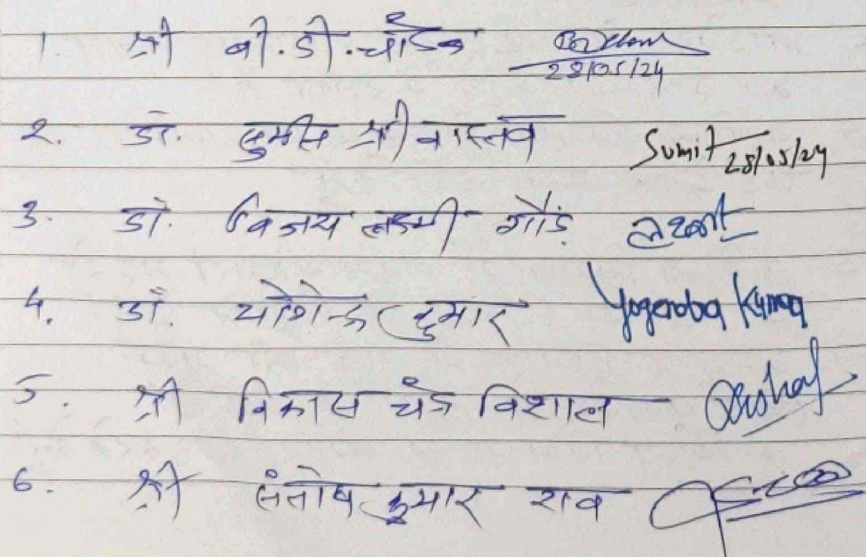 1. श्री बी. डी. 28/05/24
2. डॉ. सुमीत श्रीवास्तव Sumit 28/05/24
3. डॉ. विजय लक्ष्मी गौड़
4. डॉ. योगेन्द्र कुमार Yogendra Kumar
5. श्री विकास चंद्र विशाल
6. श्री संतोष कुमार राव